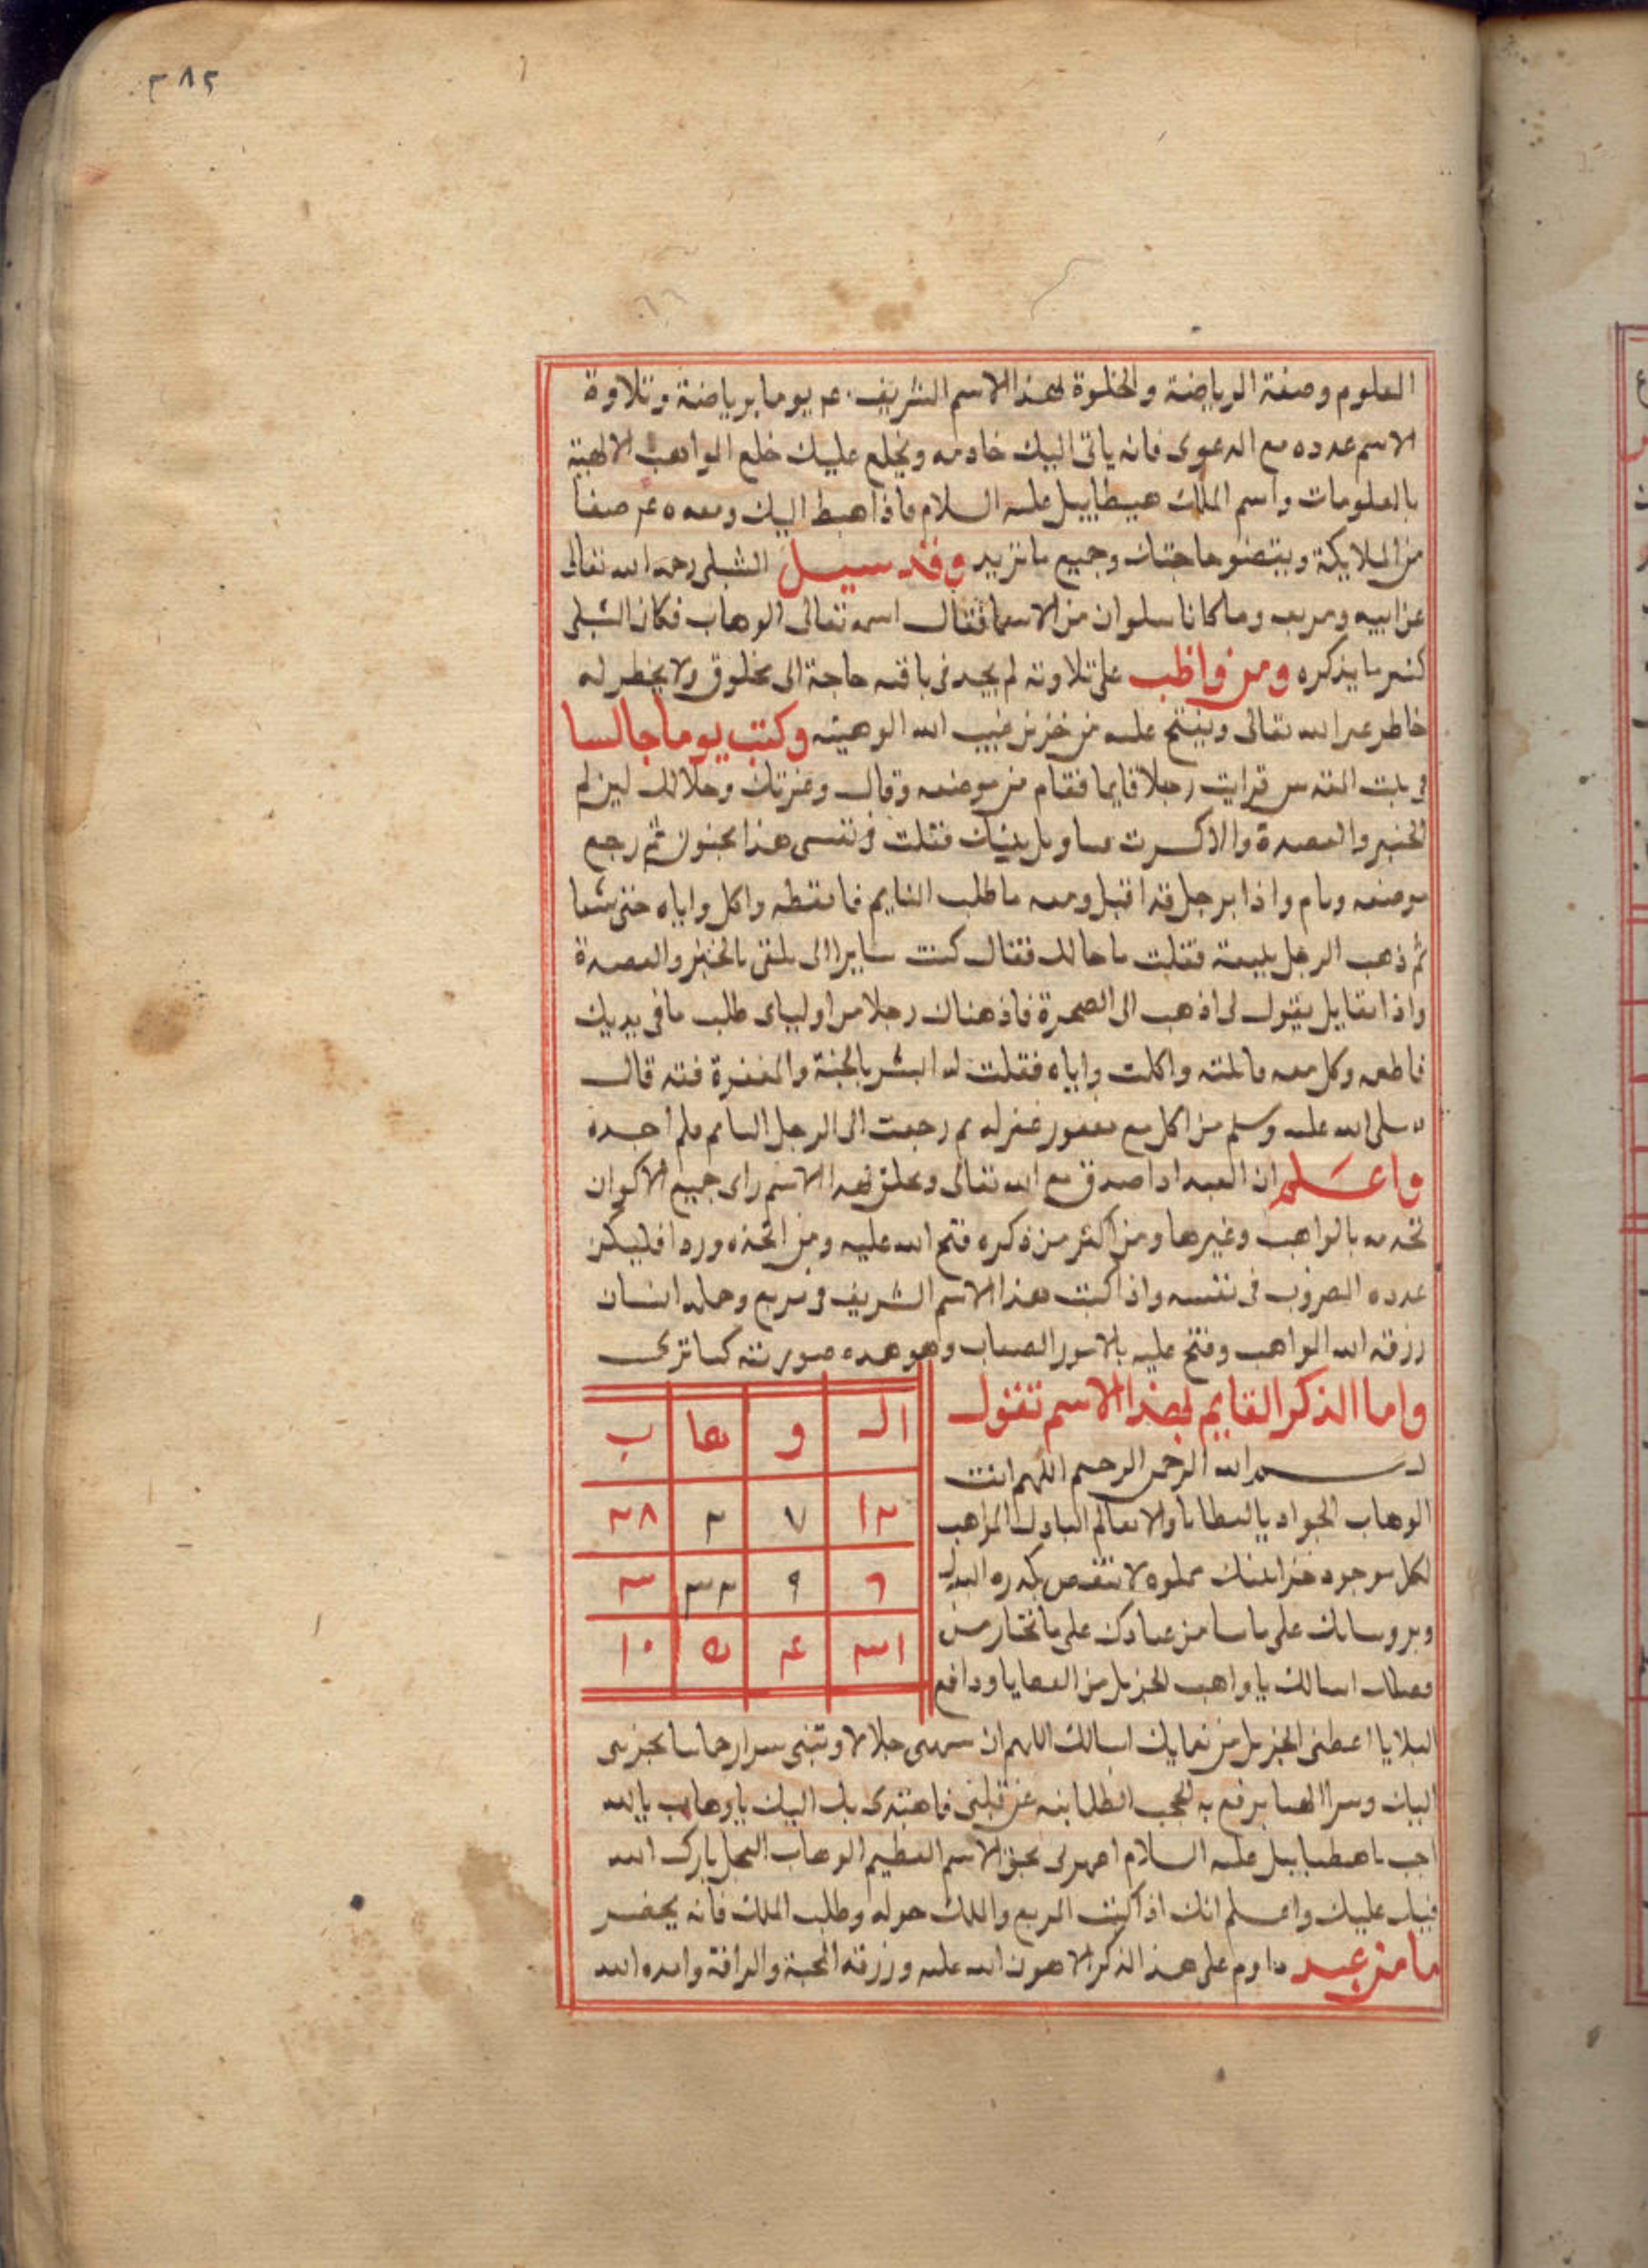 ٣٨٢
العلوم وصفة الرياضة والخلوة لهذا الاسم الشريف عم يوما برياضة وتلاوة
الاسم عدده مع الدعوى فانه ياتى اليك خادمه ويخلع عليك خلع المواهب الالهية
بالعلومات واسم الملك هيطاييل عليه السلام فاذا هبط اليك ومعه صفا
من الملايكة ويقضو حاجتك وجميع ما تريد وقد سيل الشبلى رحمه الله تعالى
عن ابيه وما كانا يتلوان من الاسما فقال اسمه تعالى الوهاب فكان الشبلى
كثير ما يذكره ومن واظب على تلاوته لم يجد فى باقيه حاجة الى مخلوق ولا يخطر له
خاطر غير الله تعالى ويفتح عليه من خزين غيب الله الوهبيته وكنت يوما جالسا
فى بيت المقدس فرايت رجلا قايما فقام من موضعه وقال وعزتك وجلالك لين لم
الخبز والعصدة والا كسرت بيتك فقلت فى نفسى هذا مجنون ثم رجع
موضعه ونام واذا برجل قد اقبل ومعه ما طلب النايم فايقظه واكل واياه حتى شبعا
ثم ذهب الرجل فقلت ما حالك فقال كنت سايرا الى بالخبز والعصدة
واذا بقايل يقول لى اذهب الى الصخرة فاذ هناك رجلا من اولياى طلب ما فى يديك
فاطعمه وكل معه فاتيته واكلت واياه فقلت له ابشر بالجنة والمغفرة فقد قال
صلى الله عليه وسلم من اكل مع مغفور غفر له ثم رجعت الى الرجل النايم فلم اجده
واعلم ان العبد اذا صدق مع الله تعالى وتخلق بهذا الاسم راى جميع الاكوان
تخدمه بالمواهب وغيرها ومن اكثر من ذكره فتح الله عليه ومن اتخذه وردا فليكن
عدده المضروب فى نفسه واذا كتبت هذا الاسم الشريف فى مربع وحمله انسان
رزقه الله المواهب وفتح عليه بالامور الصعاب وهو هذه صورته كما ترى
واما الذكر القايم بهذا الاسم تقول
بسم الله الرحمن الرحيم اللهم انت
الوهاب الجواد بالعطايا والانعام الباذل المواهب
لكل موجود خزاينك مملوه لا تنقص بكثرة البذل
على ما تشا من عبادك على ما تختار من
فضلك اسالك يا واهب الجزيل من العطايا ودافع
ال و ها ب
١٢ ٧ ٢ ٢٨
٦ ٩ ٣٢ ٣
٣١ ٤ ٥ ١٠
البلايا اعطنى الجزيل من نعمايك اسالك اللهم ان جلالا
اليك وسرا الهيا يرفع به الحجب الظلمانيه عن قلبى فاهتدى بك اليك يا وهاب يا الله
اجب يا هيطاييل عليه السلام بحق الاسم العظيم الوهاب العجل بارك الله
فيك وعليك واعلم انك اذا كتبت المربع والملك حوله وطلب الملك فانه يحضر
ما من عبد داوم على هذا الذكر الا هون الله عليه ورزقه المحبة والرافة وامده الله